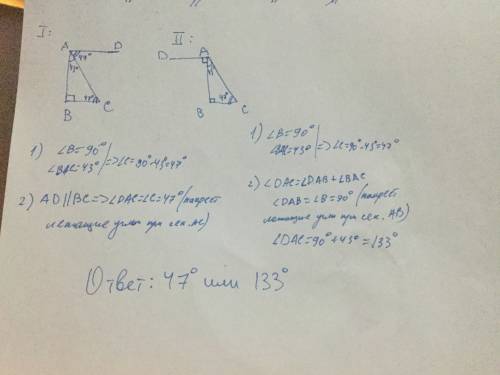 I:
II:
A
D
47°
43°
B
47°
C
D
A
43°
B
47°
C
1) ∠B=90°
∠BAC=43° => ∠C=90°-43°=47°
2) AD||BC => ∠DAC=∠C=47° (накрест
лежащие углы при сек. AC)
1) ∠B=90°
∠BAC=43° => ∠C=90°-43°=47°
2) ∠DAC=∠DAB+∠BAC
∠DAB=∠B=90° (накрест
лежащие углы при сек. AB)
∠DAC=90°+43°=133°
Ответ: 47° или 133°